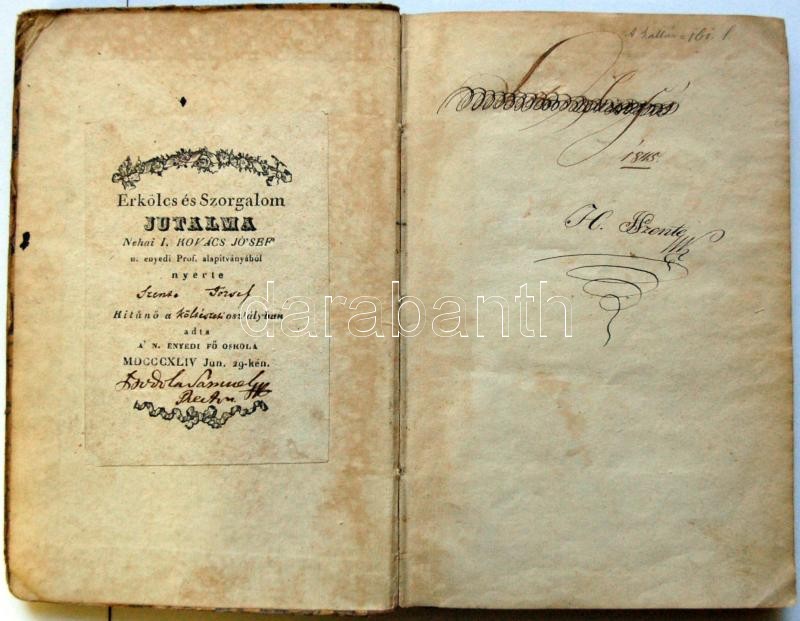 Erkölcs és Szorgalom
JUTALMA
Nehai I. KOVÁCS JÓ'SEF'
n. enyedi Prof. alapitványából
nyerte
Szente József
Kitünő a költészeti osztályban
adta
A' N. ENYEDI FŐ OSKOLA
MDCCCXLIV Jun. 29-kén.
Bodola Sámuel
Rector
161.
1845.
H. Szente
darabanth